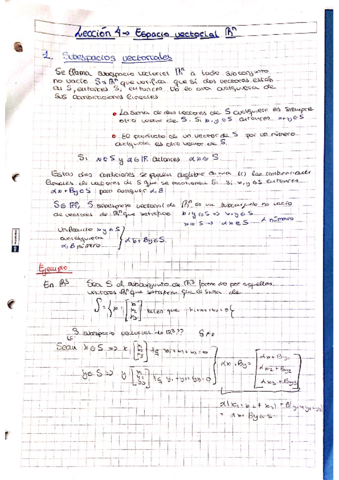 Lección 4 → Espacio vectorial ℝⁿ
1. Subespacios vectoriales
Se llama subespacio vectorial ℝⁿ a todo subconjunto
no vacío S ℝⁿ que verifica que si dos vectores están
de S, entonces S, entonces
sus combinaciones lineales
• La suma de dos vectores de S cualquiera es siempre
otro vector de S. Si x, y ∈ S entonces x+y ∈ S
• El producto de un vector de S por un número
cualquiera es otro vector de S.
Si x ∈ S y α ∈ ℝ entonces αx ∈ S.
Estas dos condiciones se pueden
lineales de vectores de S que se Si x, y ∈ S entonces
αx + βy ∈ S para cualquier α, β
S ⊆ ℝⁿ, S subespacio vectorial de ℝⁿ, es un subconjunto no vacío
de vectores de ℝⁿ que satisface x, y ∈ S ⇒ x+y ∈ S
x ∈ S ⇒ αx ∈ S α número
x, y ∈ S
cualquiera
α, β número
αx + βy ∈ S
Ejemplo
En ℝ³ Sea S el subconjunto de ℝ³ formado por aquellos
vectores ℝ³ que satisfacen que la suma de
S = { x = [x₁ x₂ x₃] tales que x₁+x₂+x₃=0 }
S subespacio vectorial de ℝ³??
Sean x ∈ S ⇒ x [x₁ x₂ x₃] tq x₁+x₂+x₃=0
y ∈ S ⇒ y [y₁ y₂ y₃] tq y₁+y₂+y₃=0
αx + βy = [αx₁ + βy₁ αx₂ + βy₂ αx₃ + βy₃]
α(x₁+x₂+x₃) + β(y₁+y₂+y₃)
= αx + βy ∈ S